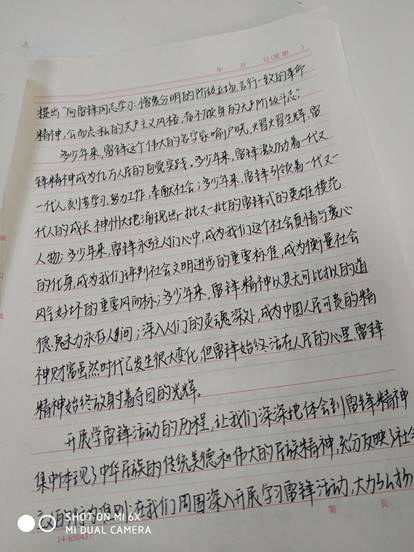 年 月 日(星期 )
提出"向雷锋同志学习:憎爱分明的阶级立场,言行一致的革命
精神,公而忘私的共产主义风格,奋不顾身的无产阶级斗志"
多少年来,雷锋这个伟大的名字家喻户晓,火智火目生辉,雷
锋精神成为亿万人民的自觉实践。多少年来,雷锋激励着一代又
一代人刻苦学习,努力工作,奉献社会;多少年来,雷锋引领着一代又一
代人的成长,神州大地涌现出一批又一批的雷锋式的英雄模范
人物;多少年来,雷锋永驻人们心中,成为我们这个社会真情与爱心
的化身,成为我们评判社会文明进步的重要标准,成为衡量社会
风气好坏的重要风向标;多少年来,雷锋精神以其无可比拟的道
德魅力永在人间;深入人们的灵魂深处,成为中国人民可贵的精
神财富虽然时代已发生很大变化,但雷锋始终活在人民的心里,雷锋
精神始终放射着夺目的光辉。
开展学雷锋活动的历程,让我们深深地体会到雷锋精神
集中体现了中华民族的传统美德和伟大的民族精神,充分反映了社会
在我们周围深入开展学习雷锋活动,大力弘扬
第 页
SHOT ON MI 6X
MI DUAL CAMERA